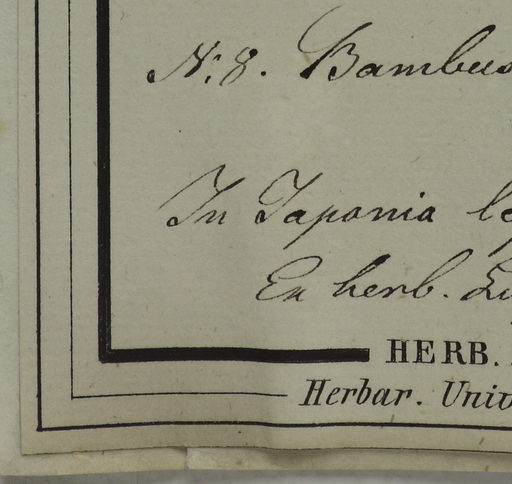 N: 8. Bambus
In Japonia le
Ex herb.
HERB.
Herbar. Univ